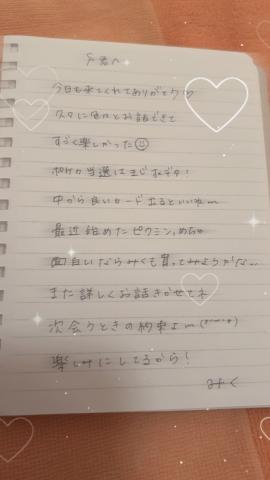 今日も来てくれてありがとう♡
久々に色々とお話できて
すごく楽しかった☺
ポケカ当選はまじオメデタ!
中から良いカード出るといいねm
最近始めたピクミン、めちゃ
面白いならみくも買ってみようかな…
また詳しくお話きかせてネ
次会うときの約束よm
楽しみにしてるから!
みく